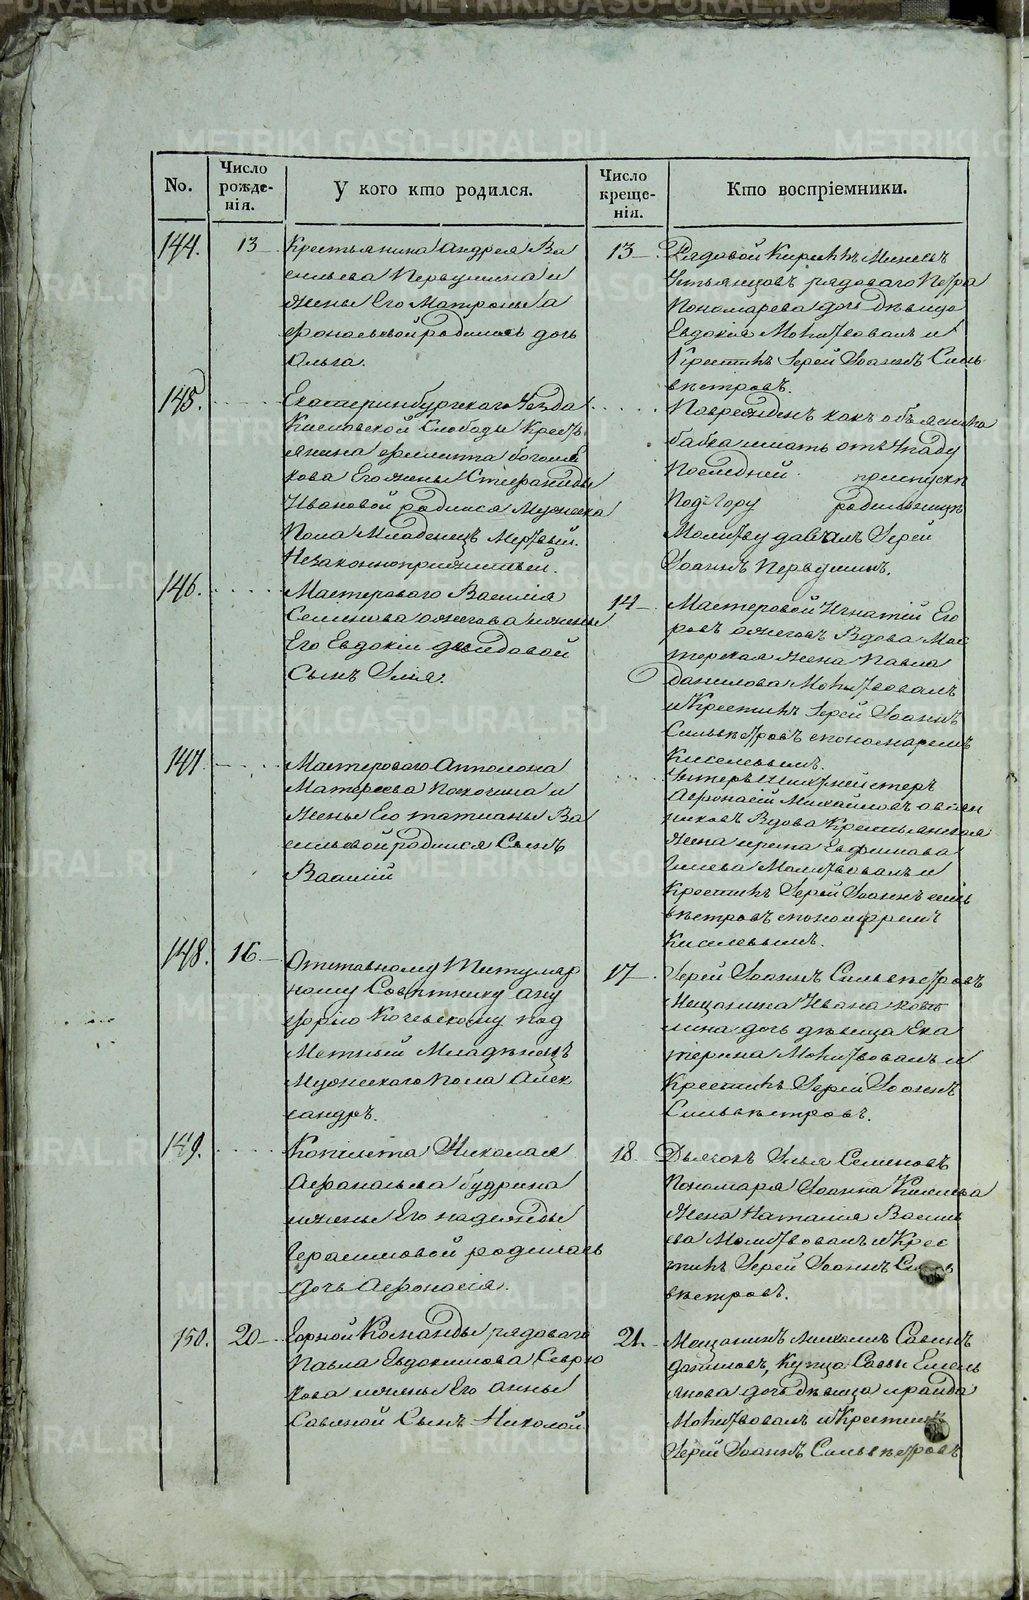 No.
Число рожде-нія.
У кого кто родился.
Число креще-нія.
Кто воспріемники.
144.
13
Крестьянина Андрея Ва
сильева Первушина и
жены Его Матроны А
фонасьевой родилась дочь
Ольга.
13
Рядовой Кирилъ Минеевъ
рядоваго Петра
Пономарева дочь дѣвица
Евдокія Молитвовалъ и
Крестилъ Іерей Іоаннъ Силь
вѣстровъ.
145.
Екатеринбургскаго Уезда
Кисловской Слободы Кресть
янина
кова Его жены Стефаниды
Ивановой родился Мужеска
Пола Младенецъ Мертвый.
Повреждѣнъ какъ объяснила
бабка
Последней
Подъ Гору родильницы
Молитву давалъ Іерей
Іоаннъ Первушинъ.
146.
Мастероваго Василія
Семенова Ожегова и жены
Его Евдокіи
Сынъ Илія.
14
Мастеровой Игнатій Его
ровъ Ожеговъ Вдова Мас
терская жена Павла
Данилова Молитвовалъ
и Крестилъ Іерей Іоаннъ
Сильвѣстровъ спономаремъ
Киселевымъ.
147
Мастероваго Апполона
Матфеева Похочина и
Жены Его татианы Ва
сильевой родился Сынъ
Василій
Унтеръ Шихтмейстеръ
Афонасій Михайловъ Овчин
никовъ Вдова Крестьянская
Жена ирина Евфимова
Молитвовалъ и
Крестилъ Іерей Іоаннъ силь
вѣстровъ спономаремъ
Киселевымъ.
148.
16
Отставному Титуляр
ному Совѣтнику
под
Метный Младѣнецъ
Мужескаго пола Алек
сандръ.
17
Іерей Іоаннъ Сильвѣстровъ
Мещанина Ивана
лина дочь дѣвица Ека
терина Молитвовалъ и
Крестилъ Іерей Іоаннъ
Сильвѣстровъ.
149.
Копіиста Николая
Афонасьева будрина
и жены Его надежды
Герасимовой родилась
Дочь Афонасія.
18
Дьячокъ Илья Семеновъ
Пономаря Іоанна Киселева
Жена Наталия Василь
ева Молитвовалъ и Крес
тилъ Іерей Іоаннъ Силь
вѣстровъ.
150.
20
Горной Команды рядоваго
Павла Евдокимова Севрю
кова и жены Его Анны
Савиной Сынъ Николай
21.
Мещанинъ Савинъ
Даниловъ, Купца Савы Емель
янова дочь дѣвица ираида
Молитвовалъ и Крестилъ
Іерей Іоаннъ Сильвѣстровъ
METRIKI.GASO-URAL.RU